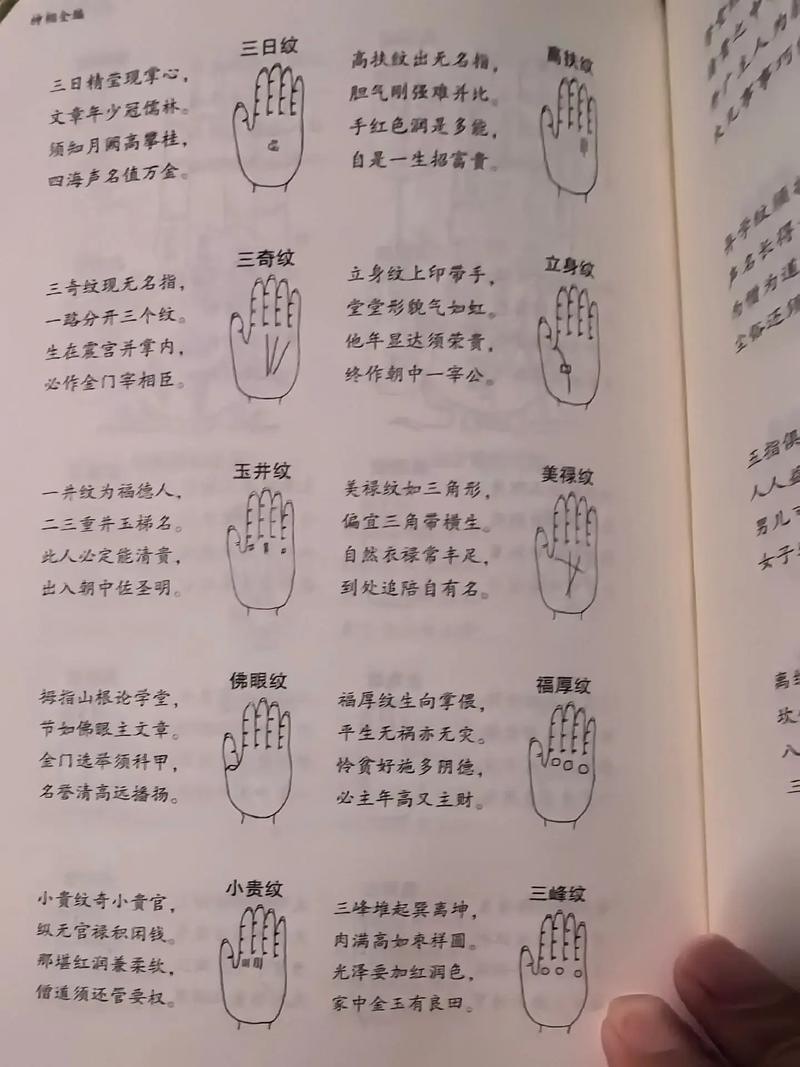 神相全编
三日纹
三日精莹现掌心，
文章年少冠儒林。
须知月阙高攀桂，
四海声名值万金。
高扶纹
高扶纹出无名指，
胆气刚强难并比。
手红色润是多能，
自是一生招富贵。
三奇纹
三奇纹现无名指，
一路分开三个纹。
生在震宫并掌内，
必作金门宰相臣。
立身纹
立身纹上印带手，
堂堂形貌气如虹。
他年显达须荣贵，
终作朝中一宰公。
玉井纹
一井纹为福德人，
二三重井玉梯名。
此人必定能清贵，
出入朝中佐圣明。
美禄纹
美禄纹如三角形，
偏宜三角带横生。
自然衣禄常丰足，
到处追陪自有名。
佛眼纹
拇指山根论学堂，
节如佛眼主文章。
金门选举须科甲，
名誉清高远播扬。
福厚纹
福厚纹生向掌偎，
平生无祸亦无灾。
怜贫好施多阴德，
必主年高又主财。
小贵纹
小贵纹奇小贵官，
纵无官禄积闲钱。
那堪红润兼柔软，
僧道须还管要权。
三峰纹
三峰堆起巽离坤，
肉满高如枣样圆。
光泽要加红润色，
家中金玉有良田。